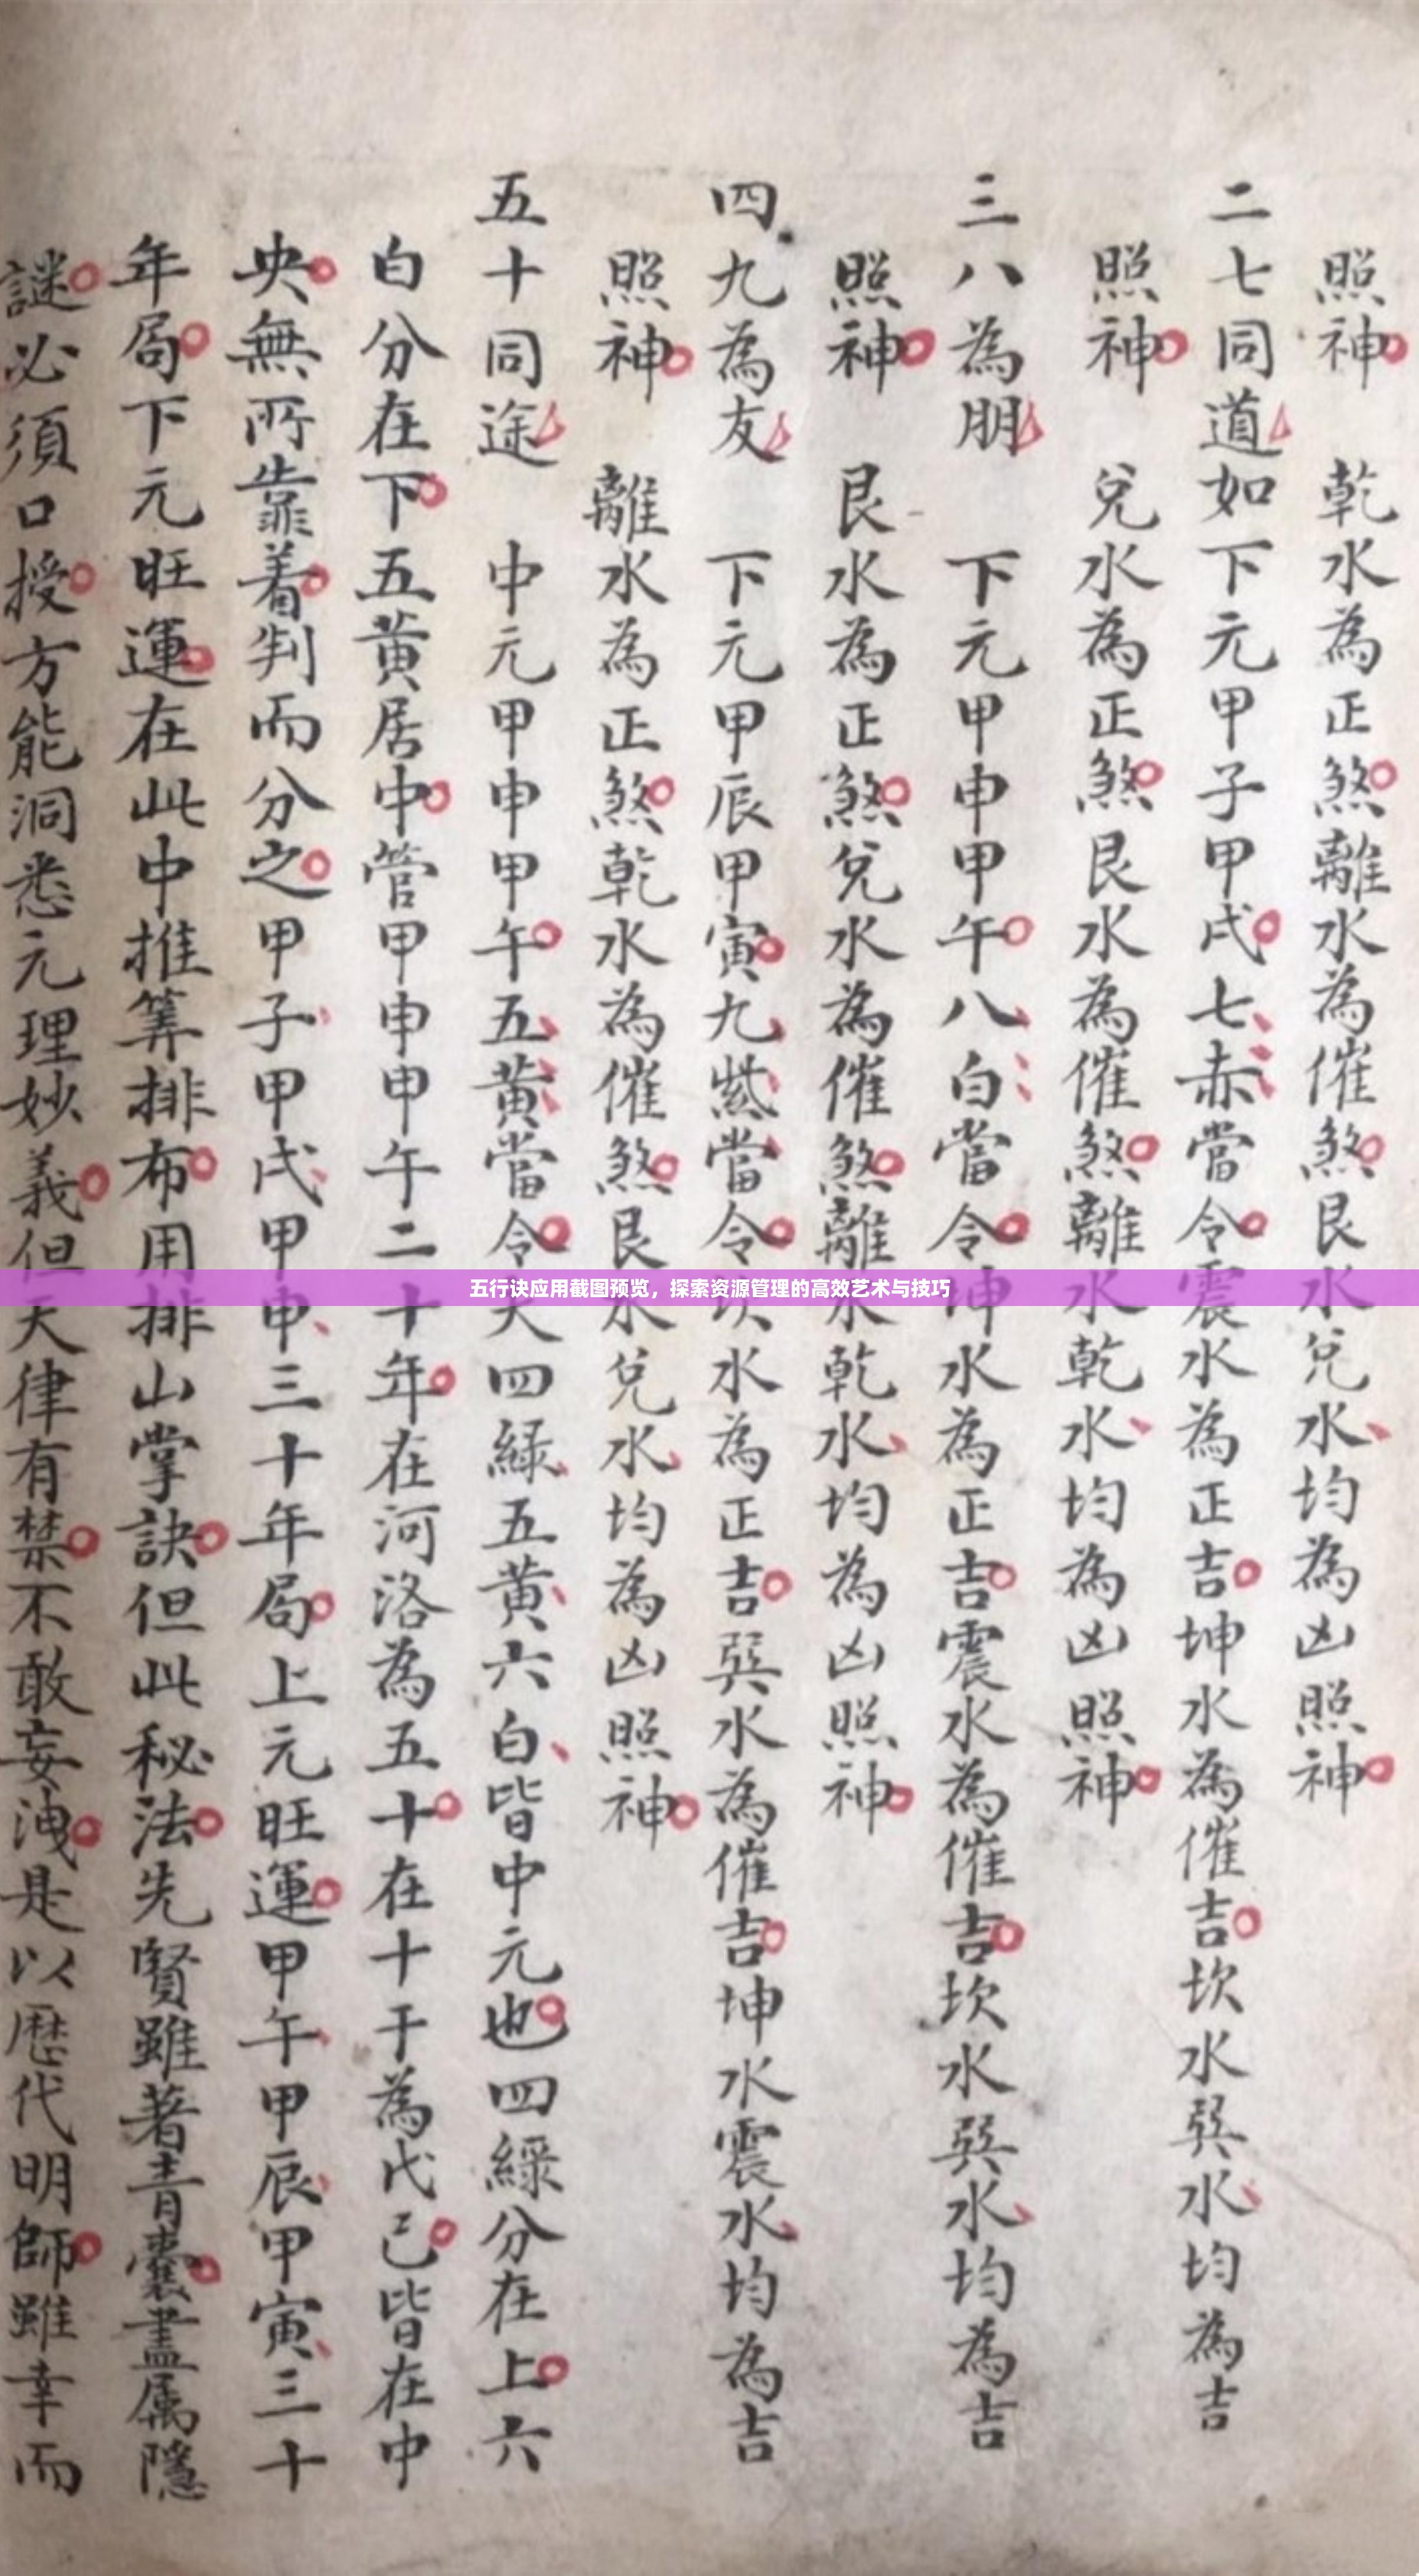 照神 乾水為正煞離水為催煞艮水兌水均為凶照神
二七同道如下元甲子甲戌七赤當令震水為正吉坤水為催吉坎水巽水均為吉
照神 兌水為正煞艮水為催煞離水乾水均為凶照神
三八為朋 下元甲申甲午八白當令坤水為正吉震水為催吉坎水巽水均為吉
照神 艮水為正煞兌水為催煞離水乾水均為凶照神
四九為友 下元甲辰甲寅九紫當令坎水為正吉巽水為催吉坤水震水均為吉
照神 離水為正煞乾水為催煞艮水兌水均為凶照神
五十同途 中元甲申甲午五黃當令夫四綠五黃六白皆中元也四綠分在上六
白分在下五黃居中管甲申甲午二十年在河洛為五十在十干為戊己皆在中
央無所靠着判而分之甲子甲戌甲申三十年局上元旺運甲午甲辰甲寅三十
年局下元旺運在此中推算排布用排山掌訣但此秘法先賢雖著青囊盡屬隱
謎必須口授方能洞悉元理妙義但天律有禁不敢妄洩是以歷代明師雖幸而
五行诀应用截图预览，探索资源管理的高效艺术与技巧